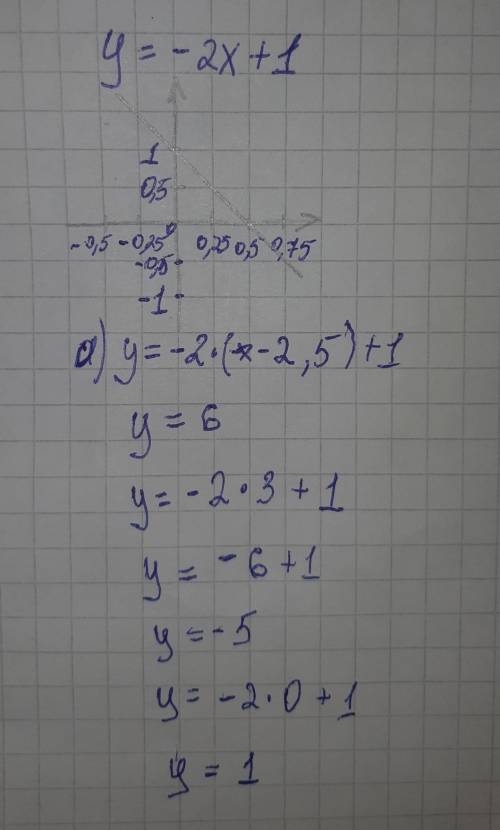 y = -2x + 1
1
0,5
-0,5 -0,25 0 0,25 0,5 0,75
-0,5
-1
a) y = -2·(-2,5) + 1
y = 6
y = -2·3 + 1
y = -6 + 1
y = -5
y = -2·0 + 1
y = 1